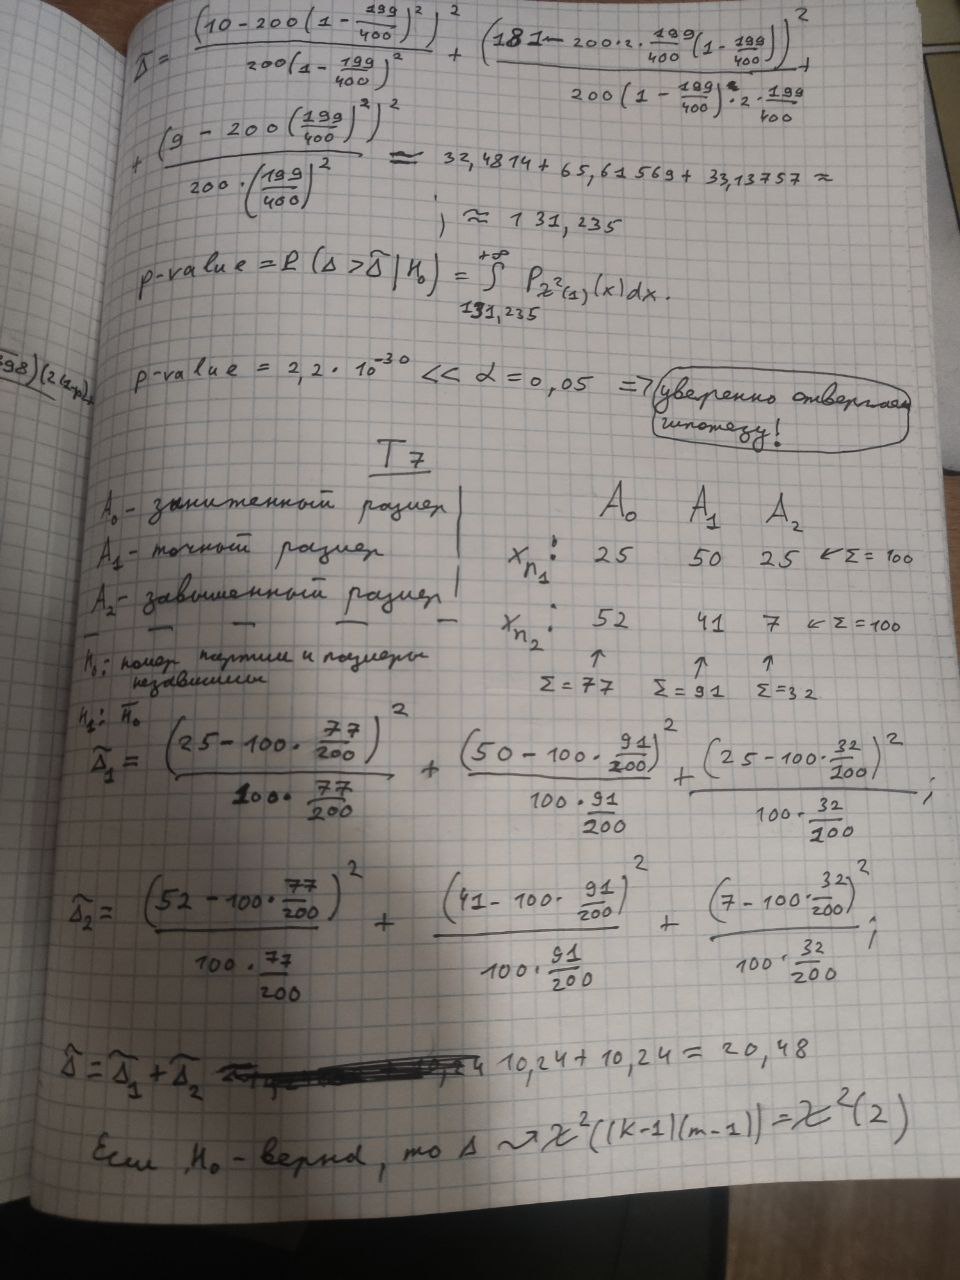 Δ̃ = (10 - 200(1 - 199/400)²)² / 200(1 - 199/400)² + (181 - 200·2·199/400(1 - 199/400))² / 200(1 - 199/400)·2·199/400 +
+ (9 - 200(199/400)²)² / 200·(199/400)² ≈ 32,4814 + 65,61569 + 33,13757 ≈
; ≈ 131,235
p-value = P(Δ > Δ̃ | H₀) = ∫_{131,235}^{+∞} P_{χ²(1)}(x)dx.
398)(2(1-p)
p-value = 2,2·10⁻³⁰ << α = 0,05 => уверенно отвергаем
гипотезу!
T7
A₀ - заниженный размер
A₁ - точный размер
A₂ - завышенный размер
A₀ A₁ A₂
x_{n₁}: 25 50 25 ← Σ = 100
x_{n₂}: 52 41 7 ← Σ = 100
↑ ↑ ↑
Σ = 77 Σ = 91 Σ = 32
H₀: номер партии и размеры
независимы
H₁: H̄₀
Δ̃₁ = (25 - 100·77/200)² / 100·77/200 + (50 - 100·91/200)² / 100·91/200 + (25 - 100·32/200)² / 100·32/200 ;
Δ̃₂ = (52 - 100·77/200)² / 100·77/200 + (41 - 100·91/200)² / 100·91/200 + (7 - 100·32/200)² / 100·32/200 ;
Δ̃ = Δ̃₁ + Δ̃₂ 10,24 + 10,24 = 20,48
Если H₀ - верна, то Δ ⤳ χ²((k-1)(m-1)) = χ²(2)